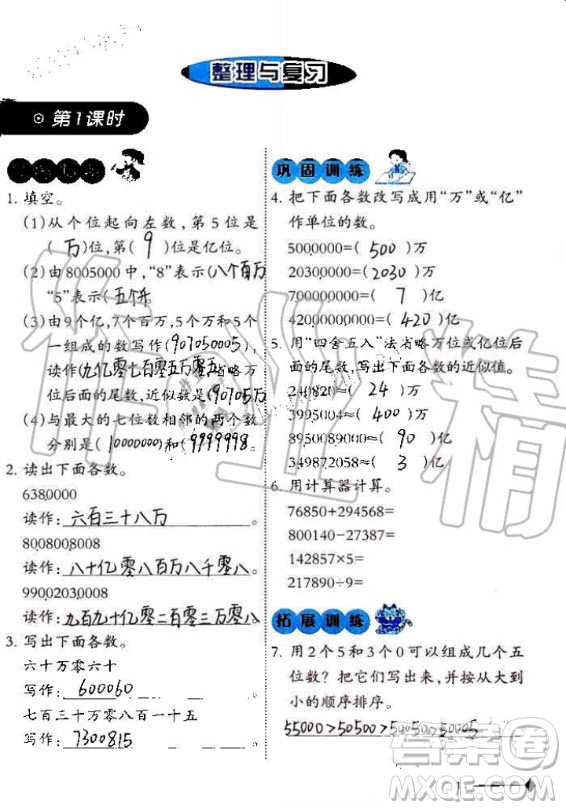 整理与复习
第1课时
1. 填空。
(1)从个位起向左数，第5位是
(万)位，第(9)位是亿位。
(2)由8005000中，“8”表示(八个百万)
“5”表示(五个千)
(3)由9个亿，7个百万，5个万和5个
一组成的数写作(907050005)，
读作(九亿零七百零五万零五)，省略万
位后面的尾数，近似数是(90705万)
(4)与最大的七位数相邻的两个数
分别是(10000000)和(9999998。
2. 读出下面各数。
6380000
读作：六百三十八万。
8008008008
读作：八十亿零八百万八千零八。
9900203000
读作：九百九十亿零二百零三万零八
3. 写出下面各数。
六十万零六十
写作：600060
七百三十万零八百一十五
写作：7300815
巩固训练
4. 把下面各数改写成用“万”或“亿”
作单位的数。
5000000=(500)万
20300000=(2030)万
700000000=(7)亿
42000000000=(420)亿
5. 用“四舍五入”法省略万位或亿位后
面的尾数，写出下面各数的近似值。
240820≈(24)万
3995004≈(400)万
8950089000≈(90)亿
349872058≈(3)亿
6. 用计算器计算。
76850+294568=
800030-57486=
142857×5=
217890÷9=
拓展训练
7. 用2个5和3个0可以组成几个五
位数？把它们写出来，并按从大到
小的顺序排序。
55000>50500>50050>50005
作业精
答案圈
MXQE.COM
1